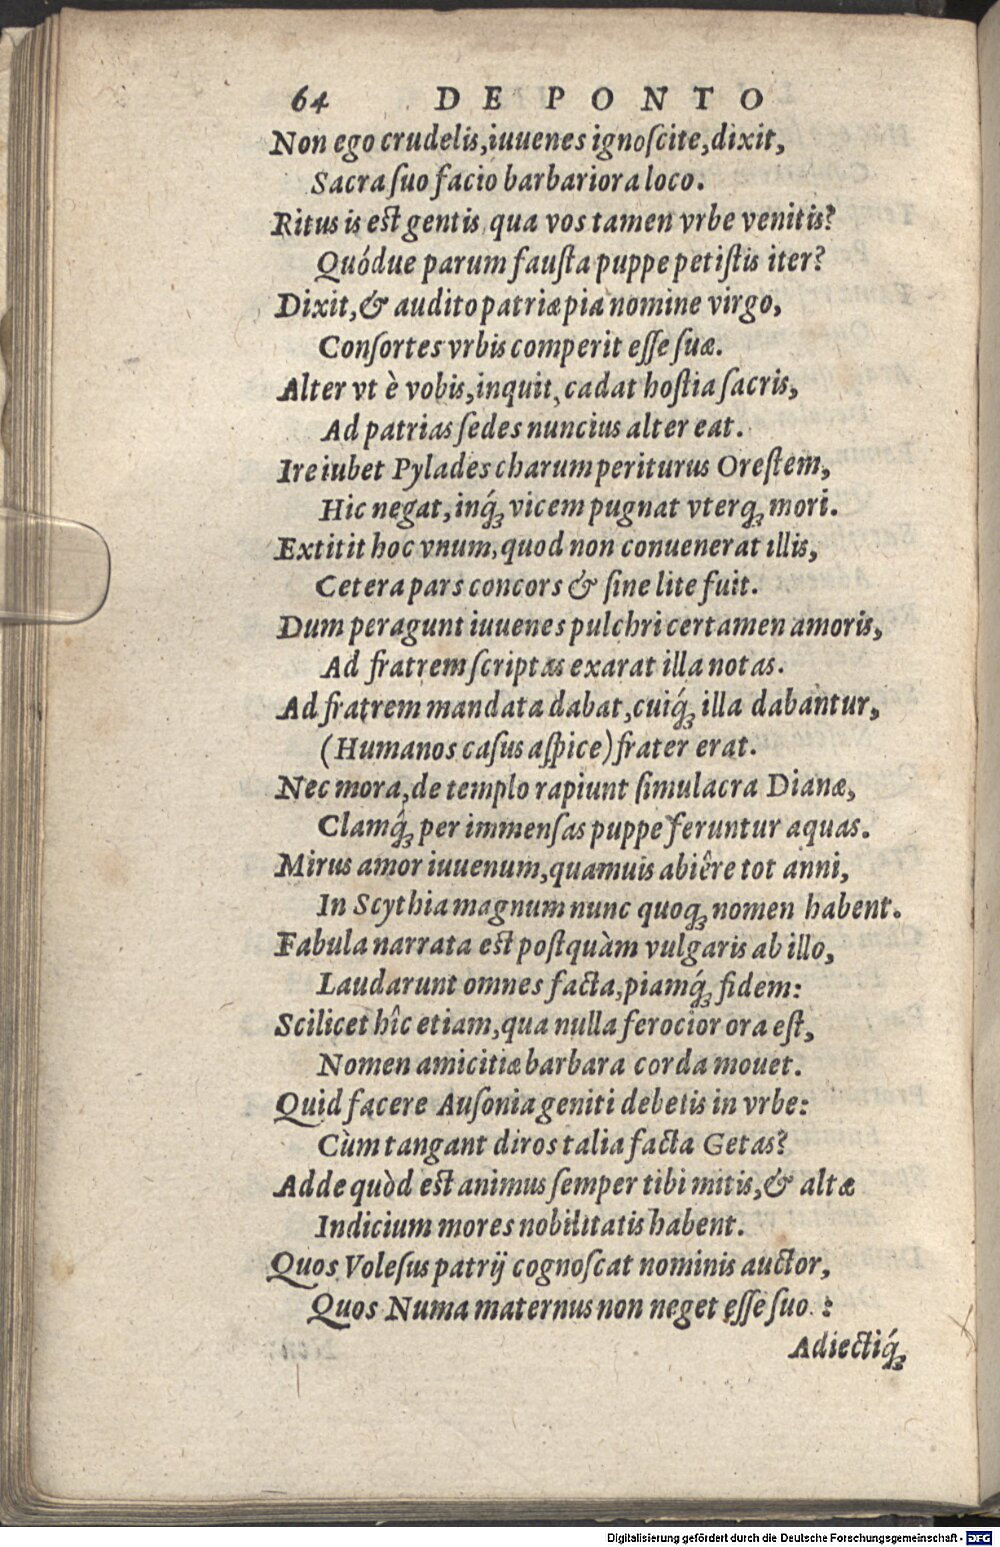 64 DE PONTO
Non ego crudelis, iuuenes ignoſcite, dixit,
Sacra ſuo facio barbariora loco.
Ritus is eſt gentis, qua vos tamen vrbe venitis?
Quódue parum fauſta puppe petiſtis iter?
Dixit, & audito patriæ pia nomine virgo,
Conſortes vrbis comperit eſſe ſuæ.
Alter vt è vobis, inquit, cadat hoſtia ſacris,
Ad patrias ſedes nuncius alter eat.
Ire iubet Pylades charum periturus Oreſtem,
Hic negat, inq́ꝫ vicem pugnat vterqꝫ mori.
Extitit hoc vnum, quod non conuenerat illis,
Cetera pars concors & ſine lite fuit.
Dum peragunt iuuenes pulchri certamen amoris,
Ad fratrem ſcriptas exarat illa notas.
Ad fratrem mandata dabat, cuiq́ꝫ illa dabantur,
(Humanos caſus aſpice) frater erat.
Nec mora, de templo rapiunt ſimulacra Dianæ,
Clamq́ꝫ per immenſas puppe feruntur aquas.
Mirus amor iuuenum, quamuis abiêre tot anni,
In Scythia magnum nunc quoqꝫ nomen habent.
Fabula narrata eſt poſtquàm vulgaris ab illo,
Laudarunt omnes facta, piamq́ꝫ fidem:
Scilicet hîc etiam, qua nulla ferocior ora eſt,
Nomen amicitiæ barbara corda mouet.
Quid facere Auſonia geniti debetis in vrbe:
Cùm tangant diros talia facta Getas?
Adde quòd eſt animus ſemper tibi mitis, & altæ
Indicium mores nobilitatis habent.
Quos Voleſus patrij cognoſcat nominis auctor,
Quos Numa maternus non neget eſſe ſuo :
Adiectiq́ꝫ
Digitalisierung gefördert durch die Deutsche Forschungsgemeinschaft - DFG